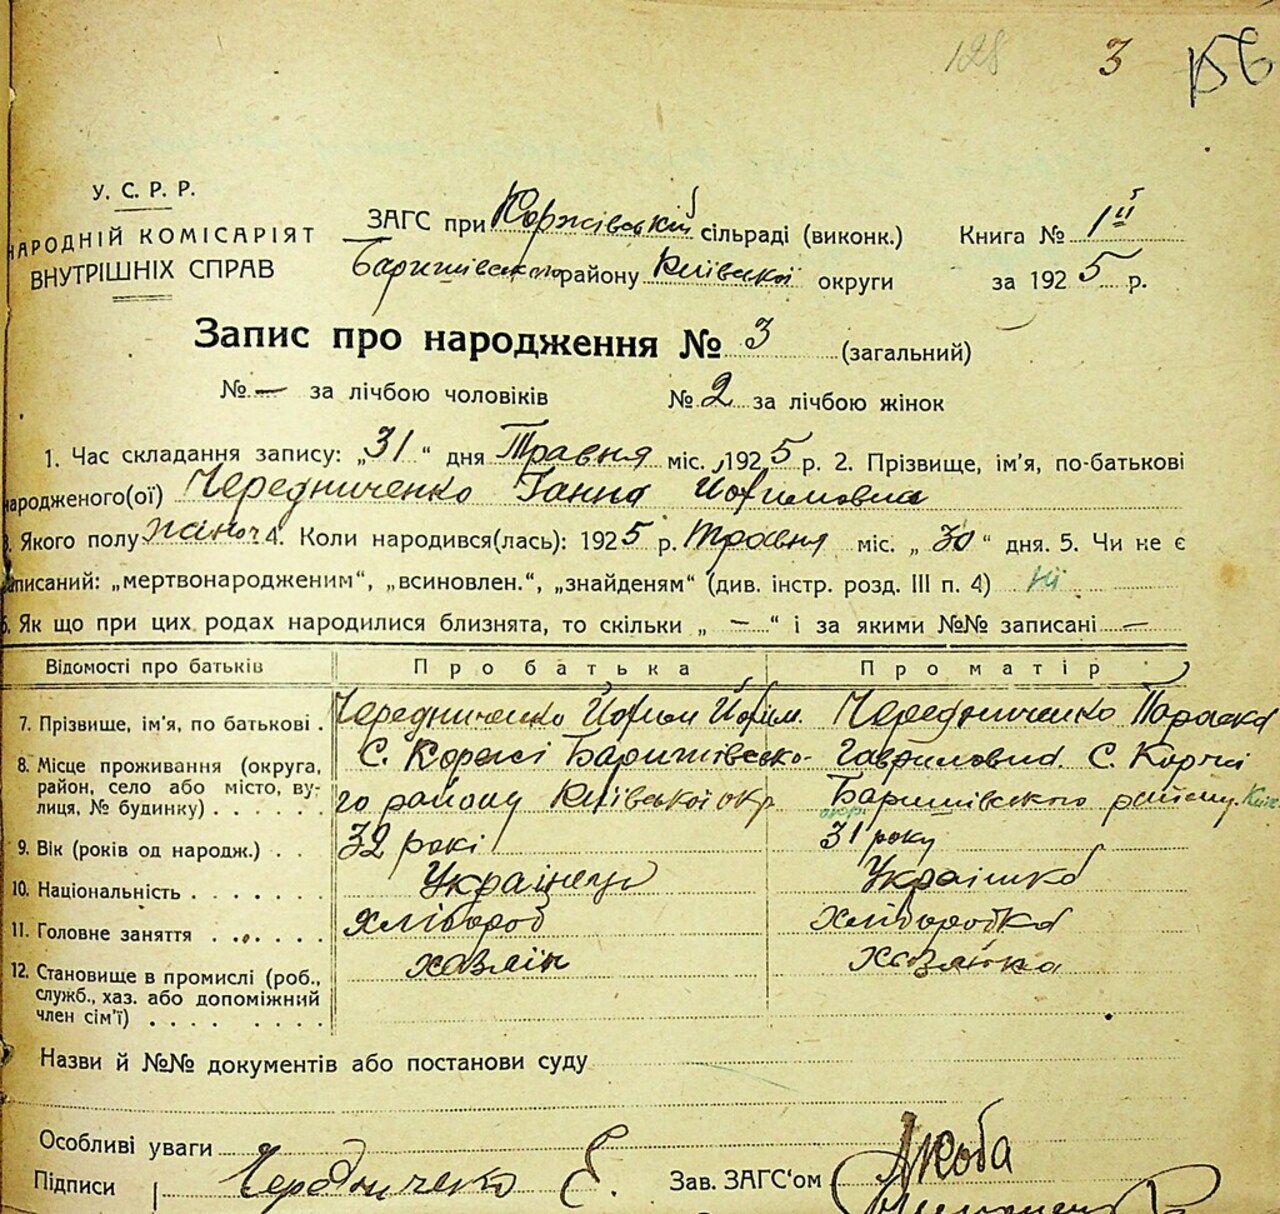 128 3 156
У. С. Р. Р.
НАРОДНІЙ КОМІСАРІЯТ
ВНУТРІШНІХ СПРАВ
ЗАГС при Коржівській сільраді (виконк.) Книга № 1й
Баришівського району Київської округи за 1925 р.
Запис про народження № 3 (загальний)
№ — за лічбою чоловіків № 2 за лічбою жінок
1. Час складання запису: „31“ дня Травня міс. 1925 р. 2. Прізвище, ім'я, по-батькові
народженого(ої) Чередниченко Ганна Йохимовна
3. Якого полу жіноч. 4. Коли народився(лась): 1925 р. Травня міс. „30“ дня. 5. Чи не є
записаний: „мертвонародженим“, „всиновлен.“, „знайденям“ (див. інстр. розд. III п. 4) Ні
6. Як що при цих родах народилися близнята, то скільки „ — “ і за якими №№ записані —
Відомості про батьків Про батька Про матір
7. Прізвище, ім'я, по батькові . Чередниченко Йохим Йохим. Чередниченко Параска
8. Місце проживання (округа, С. Коржі Баришівсько- Гавриловна. С. Коржі
район, село або місто, ву-
лиця, № будинку) . . . . . . го району Київської окр. Баришівського району. Київ. окр.
9. Вік (років од народж.) . . 32 рокі 31 року
10. Національність . . . . . . . Українець Українка
11. Головне заняття . . . . . . хлібороб хліборобка
12. Становище в промислі (роб., хазяїн хазяйка
служб., хаз. або допоміжний
член сім'ї) . . . . . . . .
Назви й №№ документів або постанови суду
Особливі уваги
Підписи Чередниченко Є. Зав. ЗАГС'ом